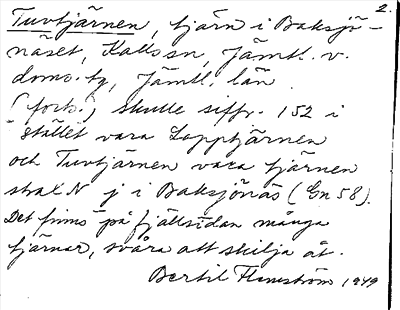 2.
Tuvtjärnen, tjärn i Baksjö-
näset, Kalls sn, Jämtl. v.
doms. tg, Jämtl. län
(forts.) skulle siffr. 152 i
stället vara Lapptjärnen
och Tuvtjärnen vara tjärnen
strax N j i Baksjönäs (Gn 58).
Det finns på fjällsidan många
tjärnar, svåra att skilja åt.
Bertil Flemström 1979